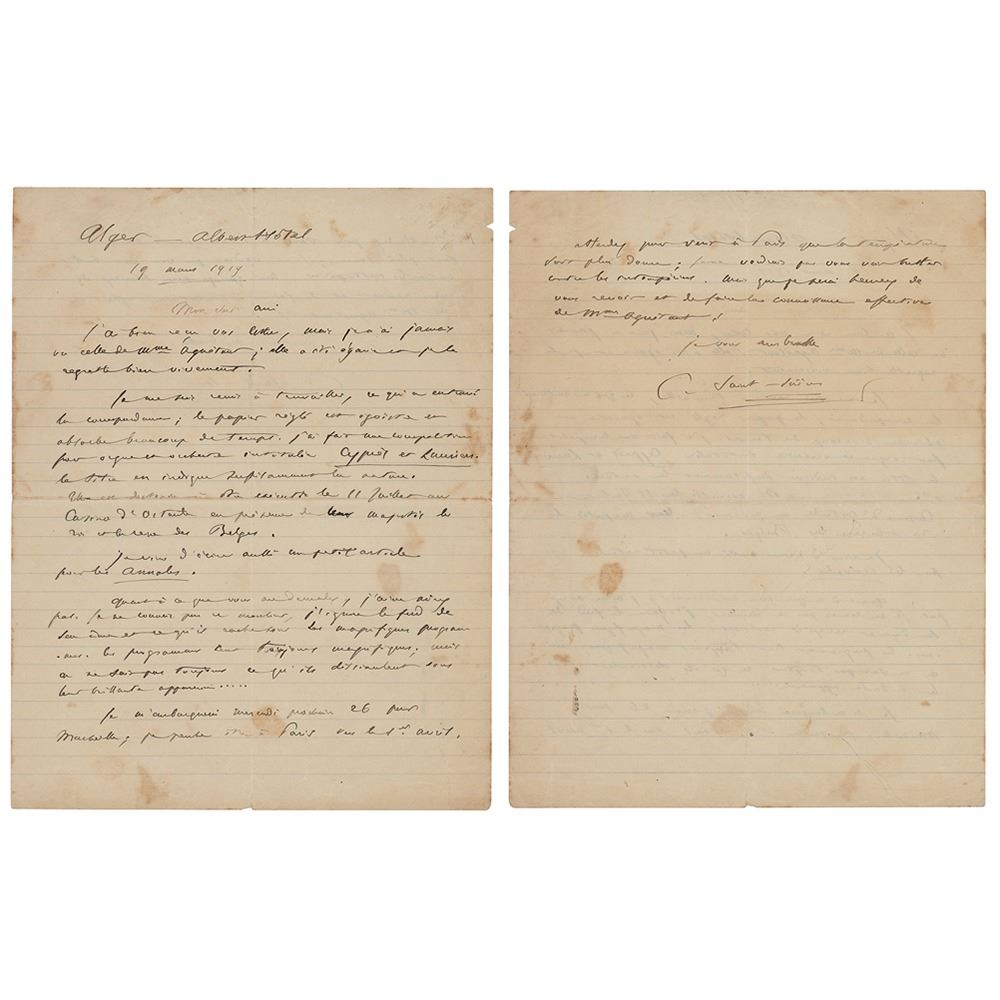 Alger — Albert Hôtel
19 mars 1919
Mon cher ami
J'ai bien reçu vos lettres, mais je n'ai jamais
vu celle de Mme Aguétant ; elle a été égarée et je le
regrette bien vivement.
Je me suis remis à travailler, ce qui a entravé
la correspondance ; le papier réglé est égoïste et
absorbe beaucoup de temps. J'ai fait une composition
pour orgue et orchestre intitulée Cyprès et Lauriers.
le titre en indique suffisamment la nature.
être exécutée le 11 Juillet au
Casino d'Ostende en présence de leurs majestés le
roi et la reine des Belges.
Je viens d'écrire aussi un petit article
pour les Annales.
Quant à ce que vous me demandez, j'aime mieux
pas. Je ne connais pas ce monsieur, j'ignore le fond de
son âme et ce qu'il cache sous ses magnifiques program-
mes. les programmes sont toujours magnifiques, mais
on ne sait pas toujours ce qu'ils dissimulent sous
leur brillante apparence.....
Je m'embarquerai mercredi prochain 26 pour
Marseille ; je pense être à Paris vers le 1er avril.
attendez pour venir à Paris que la température
soit plus douce ; je ne voudrais pas vous voir lutter
contre les intempéries. Mais que je serai heureux de
vous revoir et de faire la connaissance effective
de Mme Aguétant !
Je vous embrasse
C. Saint-Saëns